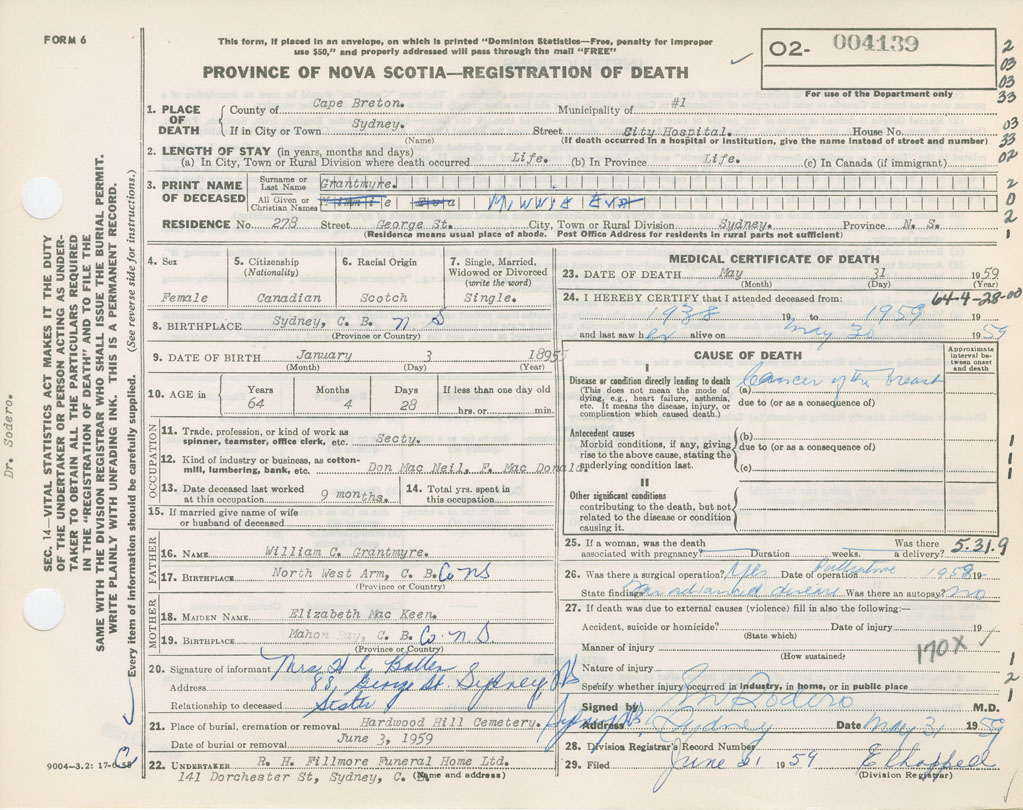 FORM 6
This form, if placed in an envelope, on which is printed "Dominion Statistics—Free, penalty for improper
use $50," and properly addressed will pass through the mail "FREE"
PROVINCE OF NOVA SCOTIA—REGISTRATION OF DEATH
O2- 004139
For use of the Department only
2
03
03
33
03
33
02
2
0
2
1
1. PLACE OF DEATH
County of Cape Breton. Municipality of #1
If in City or Town Sydney. Street City Hospital. House No.
(Name) (If death occurred in a hospital or institution, give the name instead of street and number)
2. LENGTH OF STAY (in years, months and days)
(a) In City, Town or Rural Division where death occurred Life. (b) In Province Life. (c) In Canada (if immigrant)
3. PRINT NAME OF DECEASED
Surname or Last Name Grantmyre.
All Given or Christian Names Minnie Eva Minnie Eva
RESIDENCE No. 278 Street George St. City, Town or Rural Division Sydney. Province N. S.
(Residence means usual place of abode. Post Office Address for residents in rural parts not sufficient)
4. Sex
Female
5. Citizenship
(Nationality)
Canadian
6. Racial Origin
Scotch
7. Single, Married,
Widowed or Divorced
(write the word)
Single.
8. BIRTHPLACE Sydney, C. B. N S
(Province or Country)
9. DATE OF BIRTH January 3 1895
(Month) (Day) (Year)
10. AGE in
Years Months Days If less than one day old
64 4 28 hrs. or min.
OCCUPATION
11. Trade, profession, or kind of work as
spinner, teamster, office clerk, etc. Secty.
12. Kind of industry or business, as cotton-
mill, lumbering, bank, etc. Don Mac Neil, F. Mac Donald.
13. Date deceased last worked
at this occupation 9 months.
14. Total yrs. spent in
this occupation
15. If married give name of wife
or husband of deceased
FATHER
16. NAME William C. Grantmyre.
17. BIRTHPLACE North West Arm, C. B. Co NS
(Province or Country)
MOTHER
18. MAIDEN NAME Elizabeth Mac Keen.
19. BIRTHPLACE Mahon Bay, C. B. Co. N S.
(Province or Country)
20. Signature of informant Mrs. H C
Address 88, George St. Sydney NS
Relationship to deceased Sister
21. Place of burial, cremation or removal Hardwood Hill Cemetery. Sydney NS.
Date of burial or removal June 3, 1959
22. UNDERTAKER R. H. Fillmore Funeral Home Ltd.
141 Dorchester St, Sydney, C. B.
(Name and address)
MEDICAL CERTIFICATE OF DEATH
23. DATE OF DEATH May 31 1959
(Month) (Day) (Year)
64-4-28-00
24. I HEREBY CERTIFY that I attended deceased from:
1938 19 to 1959 19
and last saw her alive on May 30 1959
CAUSE OF DEATH
Approximate
interval be-
tween onset
and death
I
Disease or condition directly leading to death
(This does not mean the mode of
dying, e.g., heart failure, asthenia,
etc. It means the disease, injury, or
complication which caused death.)
(a) Cancer of the breast
due to (or as a consequence of)
Antecedent causes
Morbid conditions, if any, giving
rise to the above cause, stating the
underlying condition last.
(b)
due to (or as a consequence of)
(c)
II
Other significant conditions
contributing to the death, but not
related to the disease or condition
causing it.
1
1
1
25. If a woman, was the death Was there
associated with pregnancy? Duration weeks. a delivery?
5.31.9
26. Was there a surgical operation? Yes Date of operation Palliative 1958 19
State findings advanced disease Was there an autopsy? No
27. If death was due to external causes (violence) fill in also the following:—
Accident, suicide or homicide? Date of injury 19
(State which)
Manner of injury
(How sustained)
170X
Nature of injury
Specify whether injury occurred in industry, in home, or in public place
1
2
1
Signed by Sodero M.D.
Address Sydney Date May 31 1959
28. Division Registrar's Record Number
29. Filed June 1 1959
(Division Registrar)
SEC. 14—VITAL STATISTICS ACT MAKES IT THE DUTY
OF THE UNDERTAKER OR PERSON ACTING AS UNDER-
TAKER TO OBTAIN ALL THE PARTICULARS REQUIRED
IN THE "REGISTRATION OF DEATH" AND TO FILE THE
SAME WITH THE DIVISION REGISTRAR WHO SHALL ISSUE THE BURIAL PERMIT.
WRITE PLAINLY WITH UNFADING INK. THIS IS A PERMANENT RECORD.
Every item of information should be carefully supplied. (See reverse side for instructions.)
Dr. Sodero.
9004-3.2: 17-6-58